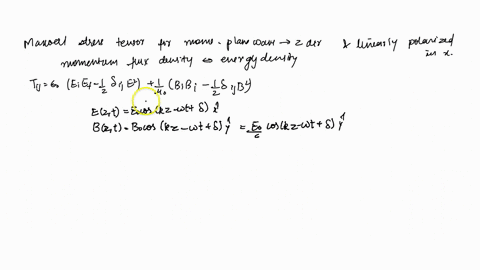 Maxwell stress tensor for mono. plane wave → z dir & linearly polarized in x.
momentum flux density ⇔ energy density
Tij = ε0 (EiEj - 1/2 δij E²) + 1/μ0 (BiBj - 1/2 δij B²)
E(z,t) = E0 cos(kz - ωt + δ) x̂
B(z,t) = B0 cos(kz - ωt + δ) ŷ = E0/c cos(kz - ωt + δ) ŷ